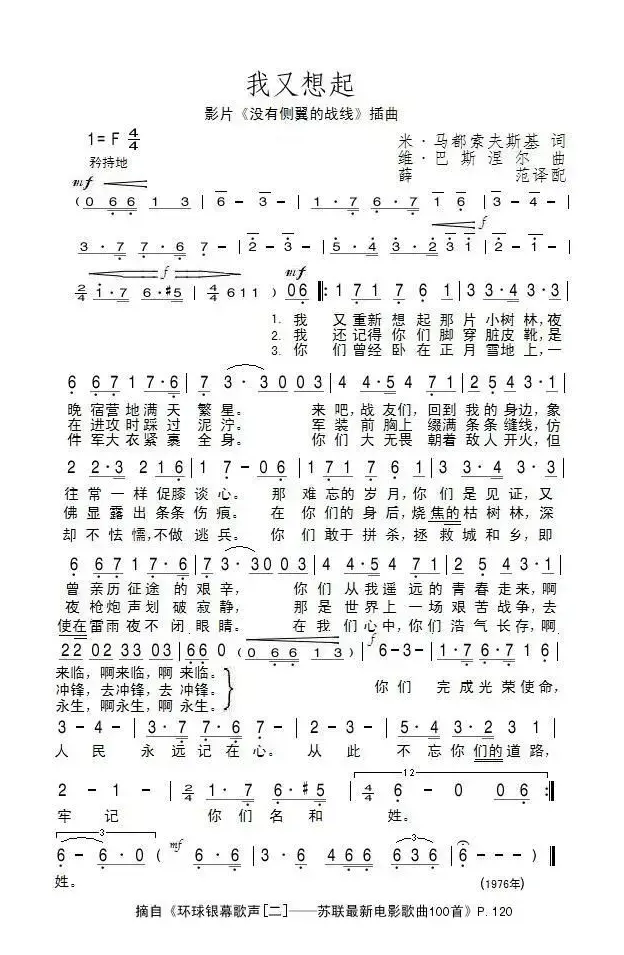 我又想起
影片《没有侧翼的战线》插曲
1= F 4/4
米·马都索夫斯基 词
维·巴斯涅尔 曲
薛 范译配
矜持地
mf
( 0 6 6 1 3 | 6 - 3 - | 1 · 7 6 · 7 6 | 3 - 4 - |
f
3 · 7 7 · 6 7 - | 2 - 3 - | 5 · 4 3 · 2 3 1 | 2 - 1 - |
f mf
2/4 1 · 7 6 · #5 | 4/4 6 1 1 ) 0 6 ‖: 1 7 1 7 6 1 | 3 3 · 4 3 · 3 |
1. 我 又重新想起那片小树林,夜
2. 我 还记得你们脚穿脏皮靴,是
3. 你 们曾经卧在正月雪地上,一
6 6 7 1 7 · 6 | 7 3 · 3 3 0 0 3 | 4 4 · 5 4 7 1 | 2 5 4 3 · 1 |
晚宿营地满天繁星。 来吧,战友们,回到我的身边,象
在进攻时踩过泥泞。 军装前胸上缀满条条缝线,仿
件军大衣紧裹全身。 你们大无畏朝着敌人开火,但
2 2 · 3 2 1 6 | 1 7 - 0 6 | 1 7 1 7 · 6 1 | 3 3 · 4 3 · 3 |
往常一样促膝谈心。 那难忘的岁月,你们是见证,又
佛显露出条条伤痕。 在你们的身后,烧焦的枯树林,深
却不怯懦,不做逃兵。 你们敢于拼杀,拯救城和乡,即
6 6 7 1 7 · 6 | 7 3 · 3 3 0 0 3 | 4 4 · 5 4 7 1 | 2 5 4 3 · 1 |
曾亲历征途的艰辛, 你们从我遥远的青春走来,啊
夜枪炮声划破寂静, 那是世界上一场艰苦战争,去
使在雷雨夜不闭眼睛。 在我们心中,你们浩气长存,啊
f
2 2 0 2 3 3 0 3 | 6 6 0 ( 0 6 6 1 3 ) | 6 - 3 - | 1 · 7 6 · 7 1 6 |
来临,啊来临,啊 来临。
冲锋,去冲锋,去 冲锋。
永生,啊永生,啊 永生。
你们 完成光荣使命,
3 - 4 - | 3 · 7 7 · 6 7 - | 2 - 3 - | 5 · 4 3 · 2 3 1 |
人民 永远记在心。从此 不忘你们的道路,
12
2 - 1 - | 2/4 1 · 7 6 · #5 | 4/4 6 - 0 0 6 :‖
牢记 你们名和 姓。
3 mf 3
6 - 6 · 0 ( 6 6 · 6 | 3 · 6 4 6 6 6 3 6 | 6 - - - ) ‖
姓。
(1976年)
摘自《环球银幕歌声[二]——苏联最新电影歌曲100首》P. 120